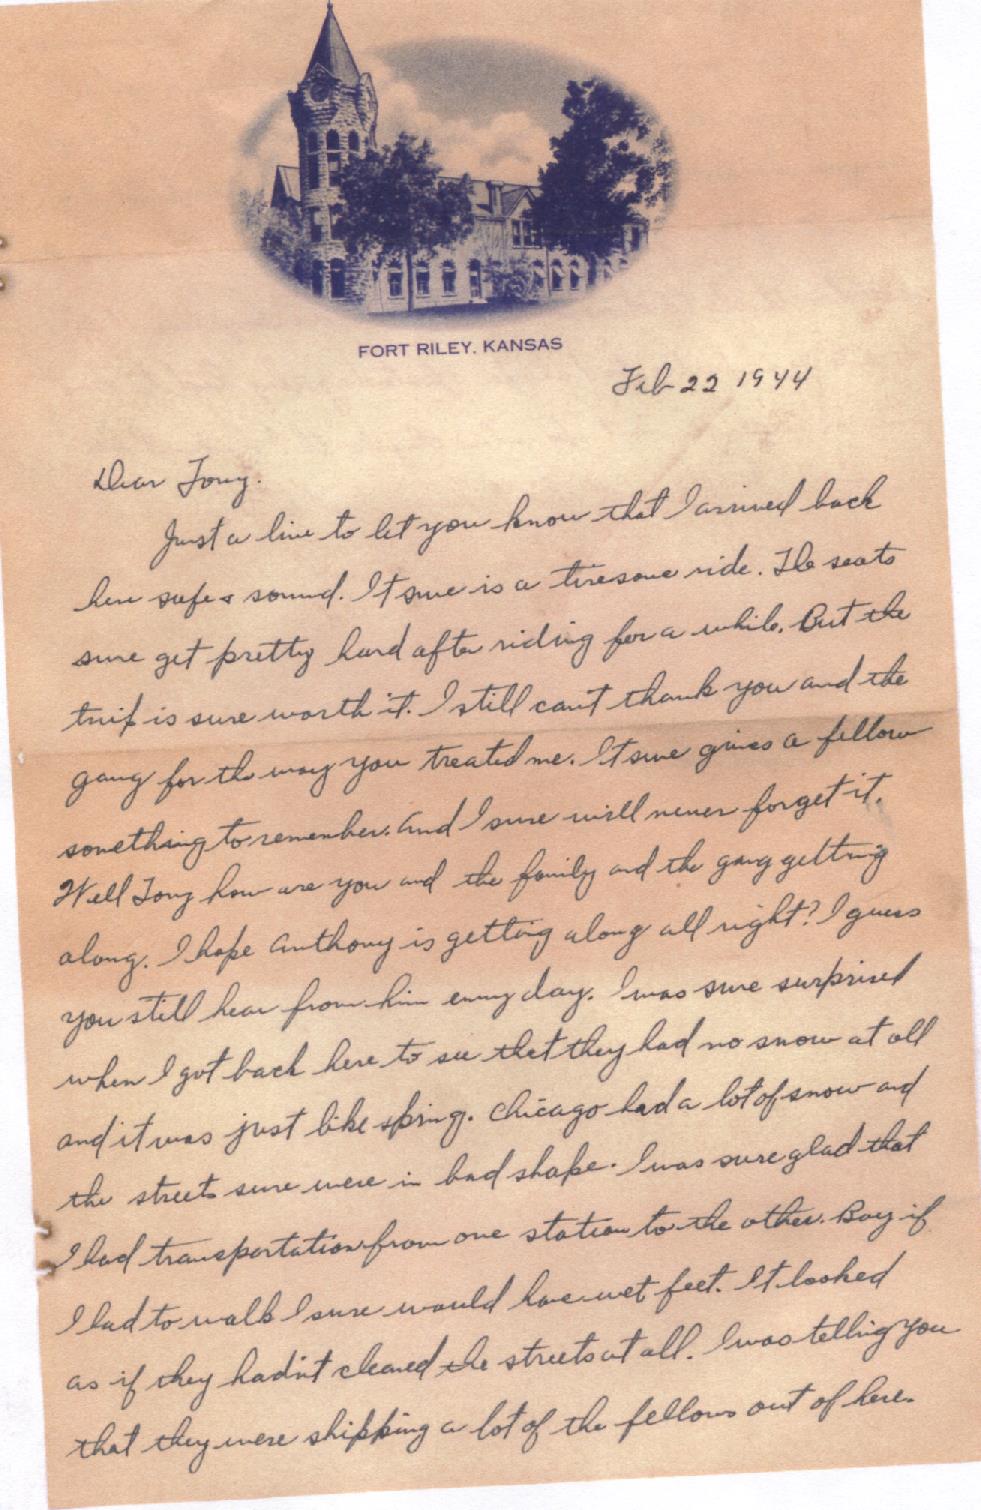 FORT RILEY, KANSAS
Feb 22 1944
Dear Tony.
Just a line to let you know that I arrived back
here safe & sound. It sure is a tiresome ride. The seats
sure get pretty hard after riding for a while. But the
trip is sure worth it. I still can't thank you and the
gang for the way you treated me. It sure gives a fellow
something to remember. And I sure will never forget it.
Well Tony how are you and the family and the gang getting
along. I hope Anthony is getting along all right? I guess
you still hear from him every day. I was sure surprised
when I got back here to see that they had no snow at all
and it was just like spring. Chicago had a lot of snow and
the streets sure were in bad shape. I was sure glad that
I had transportation from one station to the other. Boy if
I had to walk I sure would have wet feet. It looked
as if they hadn't cleaned the streets at all. I was telling you
that they were shipping a lot of the fellows out of here.